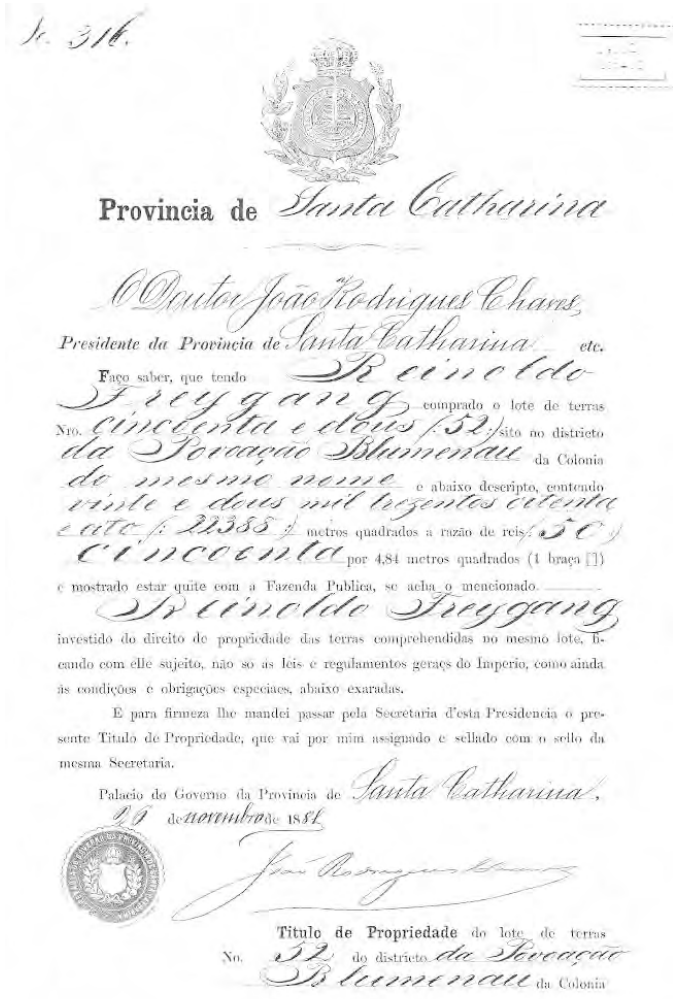 N. 316.
Provincia de Santa Catharina
O Doutor João Rodrigues Chaves,
Presidente da Provincia de Santa Catharina etc.
Faço saber, que tendo Reinoldo
Freygang comprado o lote de terras
Nro. cincoenta e dous /:52:/ sito no districto
da Povoação Blumenau da Colonia
do mesmo nome e abaixo descripto, contendo
vinte e dous mil trezentos oitenta
e oito /: 22388 :/ metros quadrados a razão de reis /: 50 :/
cincoenta por 4,84 metros quadrados (1 braça [])
e mostrado estar quite com a Fazenda Publica, se acha o mencionado
Reinoldo Freygang
investido do direito de propriedade das terras comprehendidas no mesmo lote, fi-
cando com elle sujeito, não so ás leis e regulamentos geraes do Imperio, como ainda
ás condições e obrigações especiaes, abaixo exaradas.
E para firmeza lhe mandei passar pela Secretaria d'esta Presidencia o pre-
sente Titulo de Propriedade, que vai por mim assignado e sellado com o sello da
mesma Secretaria.
Palacio do Governo da Provincia de Santa Catharina,
de novembro de 188
João Rodrigues Chaves
Titulo de Propriedade do lote de terras
No. 52 do districto da Povoação
Blumenau da Colonia